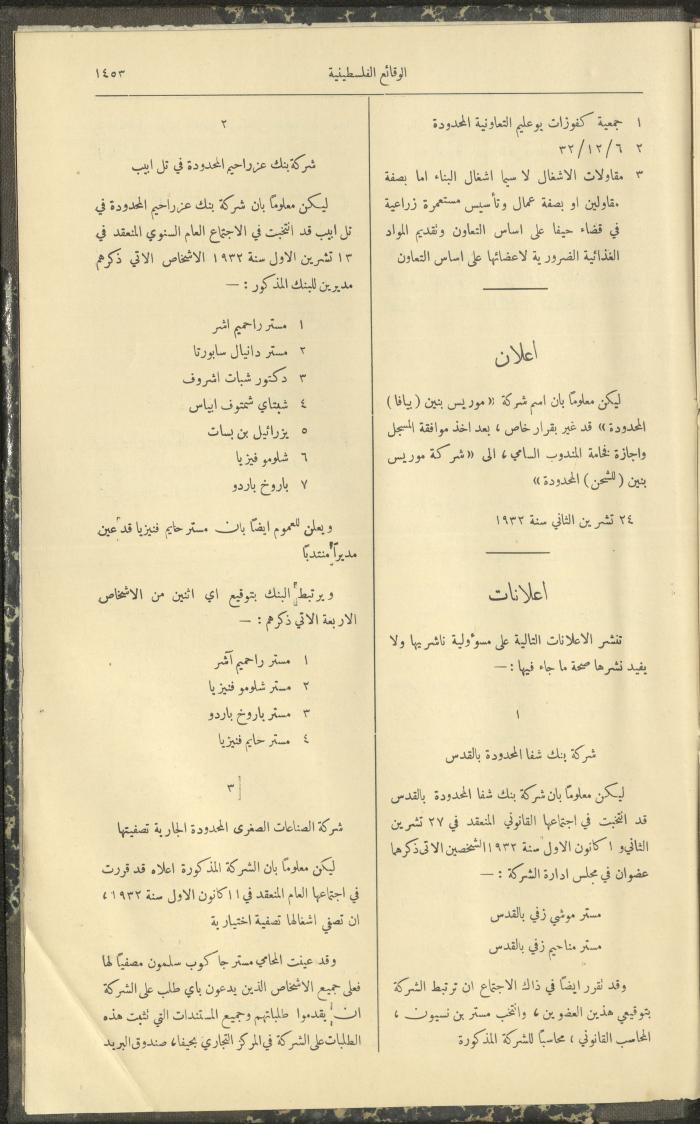 الوقائع الفلسطينية
١٤٥٣
١ جمعية كفوزات بوعليم التعاونية المحدودة
٢ ٣٢/١٢/٦
٣ مقاولات الاشغال لا سيما اشغال البناء اما بصفة
مقاولين او بصفة عمال وتأسيس مستعمرة زراعية
في قضاء حيفا على اساس التعاون وتقديم المواد
الغذائية الضرورية لاعضائها على اساس التعاون
اعلان
ليكن معلومًا بان اسم شركة «موريس بنين (يافا)
المحدودة» قد غير بقرار خاص، بعد اخذ موافقة المسجل
واجازة فخامة المندوب السامي، الى «شركة موريس
بنين (للشحن) المحدودة»
٢٤ تشرين الثاني سنة ١٩٣٢
اعلانات
تنشر الاعلانات التالية على مسؤولية ناشريها ولا
يفيد نشرها صحة ما جاء فيها : —
١
شركة بنك شفا المحدودة بالقدس
ليكن معلومًا بان شركة بنك شفا المحدودة بالقدس
قد انتخبت في اجتماعها القانوني المنعقد في ٢٧ تشرين
الثاني و ١ كانون الاول سنة ١٩٣٢ الشخصين الاتي ذكرهما
عضوان في مجلس ادارة الشركة : —
مستر موشي زفي بالقدس
مستر مناحيم زفي بالقدس
وقد تقرر ايضًا في ذاك الاجتماع ان ترتبط الشركة
بتوقيعي هذين العضوين، وانتخب مستر بن نسيون،
المحاسب القانوني، محاسبًا للشركة المذكورة
٢
شركة بنك عزراحيم المحدودة في تل ابيب
ليكن معلومًا بان شركة بنك عزراحيم المحدودة في
تل ابيب قد انتخبت في الاجتماع العام السنوي المنعقد في
١٣ تشرين الاول سنة ١٩٣٢ الاشخاص الاتي ذكرهم
مديرين للبنك المذكور : —
١ مستر راحميم اشر
٢ مستر دانيال سابورتا
٣ دكتور شبات اشروف
٤ شبتاي شمتوف ابياس
٥ يزرائيل بن بسات
٦ شلومو فيزيا
٧ باروخ باردو
ويعلن للعموم ايضًا بان مستر حايم فنيزيا قد عين
مديرًا منتدبًا
ويرتبط البنك بتوقيع اي اثنين من الاشخاص
الاربعة الاتي ذكرهم : —
١ مستر راحميم آشر
٢ مستر شلومو فنيزيا
٣ مستر باروخ باردو
٤ مستر حايم فنيزيا
٣
شركة الصناعات الصغرى المحدودة الجارية تصفيتها
ليكن معلومًا بان الشركة المذكورة اعلاه قد قررت
في اجتماعها العام المنعقد في ١١ كانون الاول سنة ١٩٣٢،
ان تصفي اشغالها تصفية اختيارية
وقد عينت المحامي مستر جاكوب سلمون مصفيًا لها
فعلى جميع الاشخاص الذين يدعون باي طلب على الشركة
ان يقدموا طلباتهم وجميع المستندات التي تثبت هذه
الطلبات على الشركة في المركز التجاري بحيفا، صندوق البريد